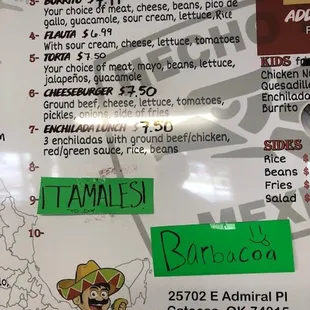 3- BURRITO $7.99
Your choice of meat, cheese, beans, pico de
gallo, guacamole, sour cream, lettuce, Rice
4- FLAUTA $6.99
With sour cream, cheese, lettuce, tomatoes
5- TORTA $7.50
Your choice of meat, mayo, beans, lettuce,
jalapeños, guacamole
6- CHEESEBURGER $7.50
Ground beef, cheese, lettuce, tomatoes,
pickles, onions, side of fries
7- ENCHILADA LUNCH $7.50
3 enchiladas with ground beef/chicken,
red/green sauce, rice, beans
8-
9-
¡TAMALES!
10-
Barbacoa
ADD
KIDS
Chicken Nu
Quesadill
Enchilada
Burrito
SIDES
Rice
Beans
Fries
Salad
25702 E Admiral Pl
Catoosa, OK 74015